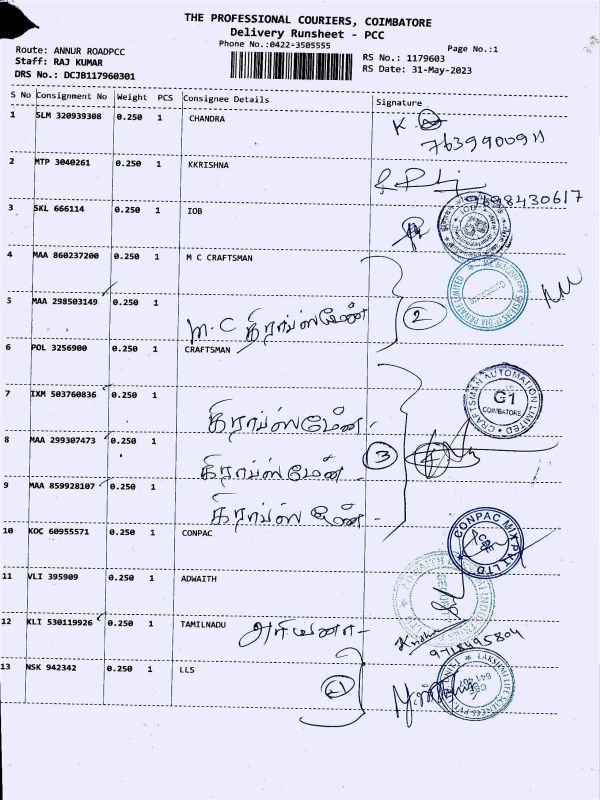 THE PROFESSIONAL COURIERS, COIMBATORE
Delivery Runsheet - PCC
Phone No.:0422-3505555
Page No.:1
Route: ANNUR ROADPCC
Staff: RAJ KUMAR
DRS No.: DCJB117960301
RS No.: 1179603
RS Date: 31-May-2023
S No Consignment No Weight PCS Consignee Details Signature
1 SLM 320939308 0.250 1 CHANDRA
K
7639900911
2 MTP 3040261 0.250 1 KKRISHNA
9698430617
3 SKL 666114 0.250 1 IOB
4 MAA 860237200 0.250 1 M C CRAFTSMAN
5 MAA 298503149 0.250 1
M.C கிராப்ஸ்மேன் 2
6 POL 3256900 0.250 1 CRAFTSMAN
7 IXM 503760836 0.250 1 கிராப்ஸ்மேன்
CRAFTSMAN AUTOMATION LIMITED
G1
COIMBATORE
8 MAA 299307473 0.250 1 கிராப்ஸ்மேன் 3
9 MAA 859928107 0.250 1 கிராப்ஸ்மேன்
10 KOC 60955571 0.250 1 CONPAC
CONPAC MIX PVT LTD
11 VLI 395909 0.250 1 ADWAITH
12 KLI 530119926 0.250 1 TAMILNADU அரியானா
Krishna
9718495804
13 NSK 942342 0.250 1 LLS